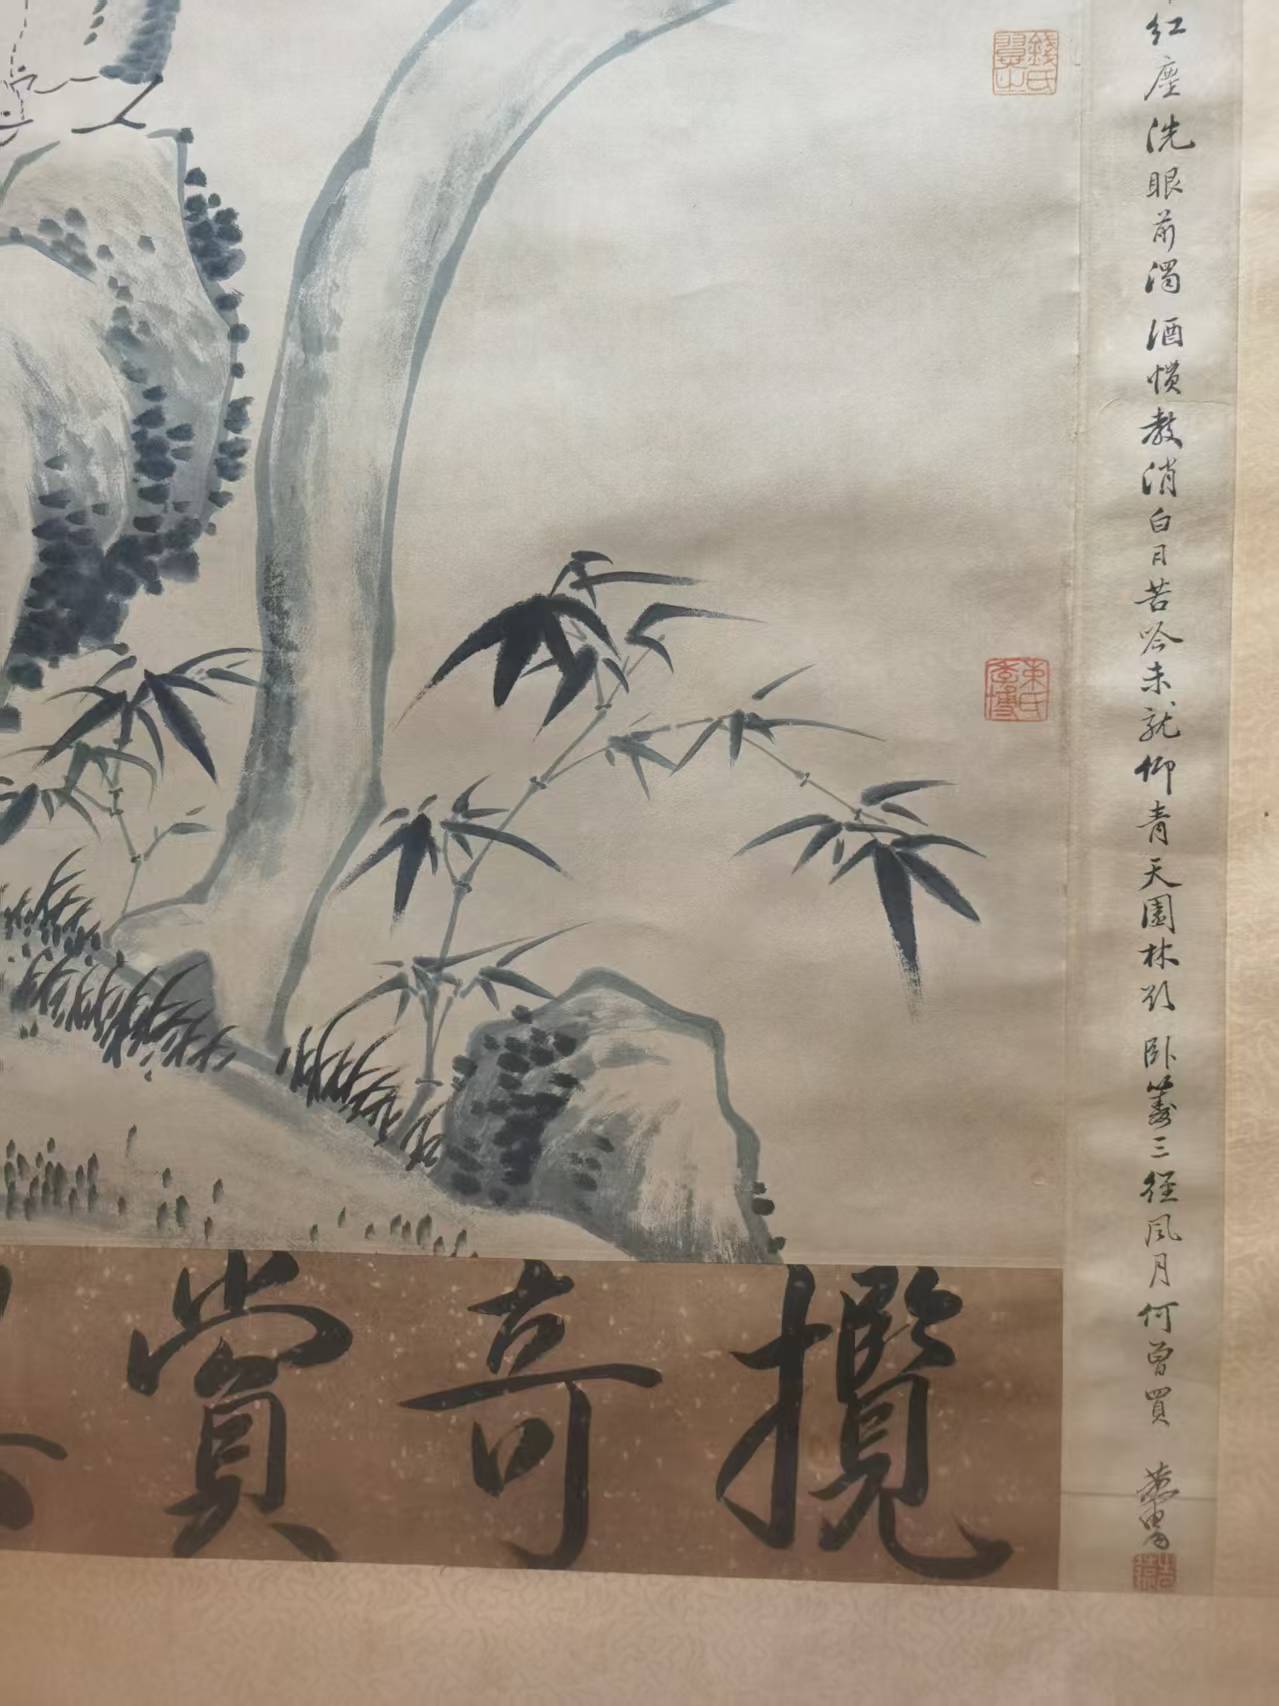 红塵洗眼前濁酒慣教消白日苦吟未就仰青天園林欲卧蓑三徑風月何曾買
攬奇賞
錢氏
東氏